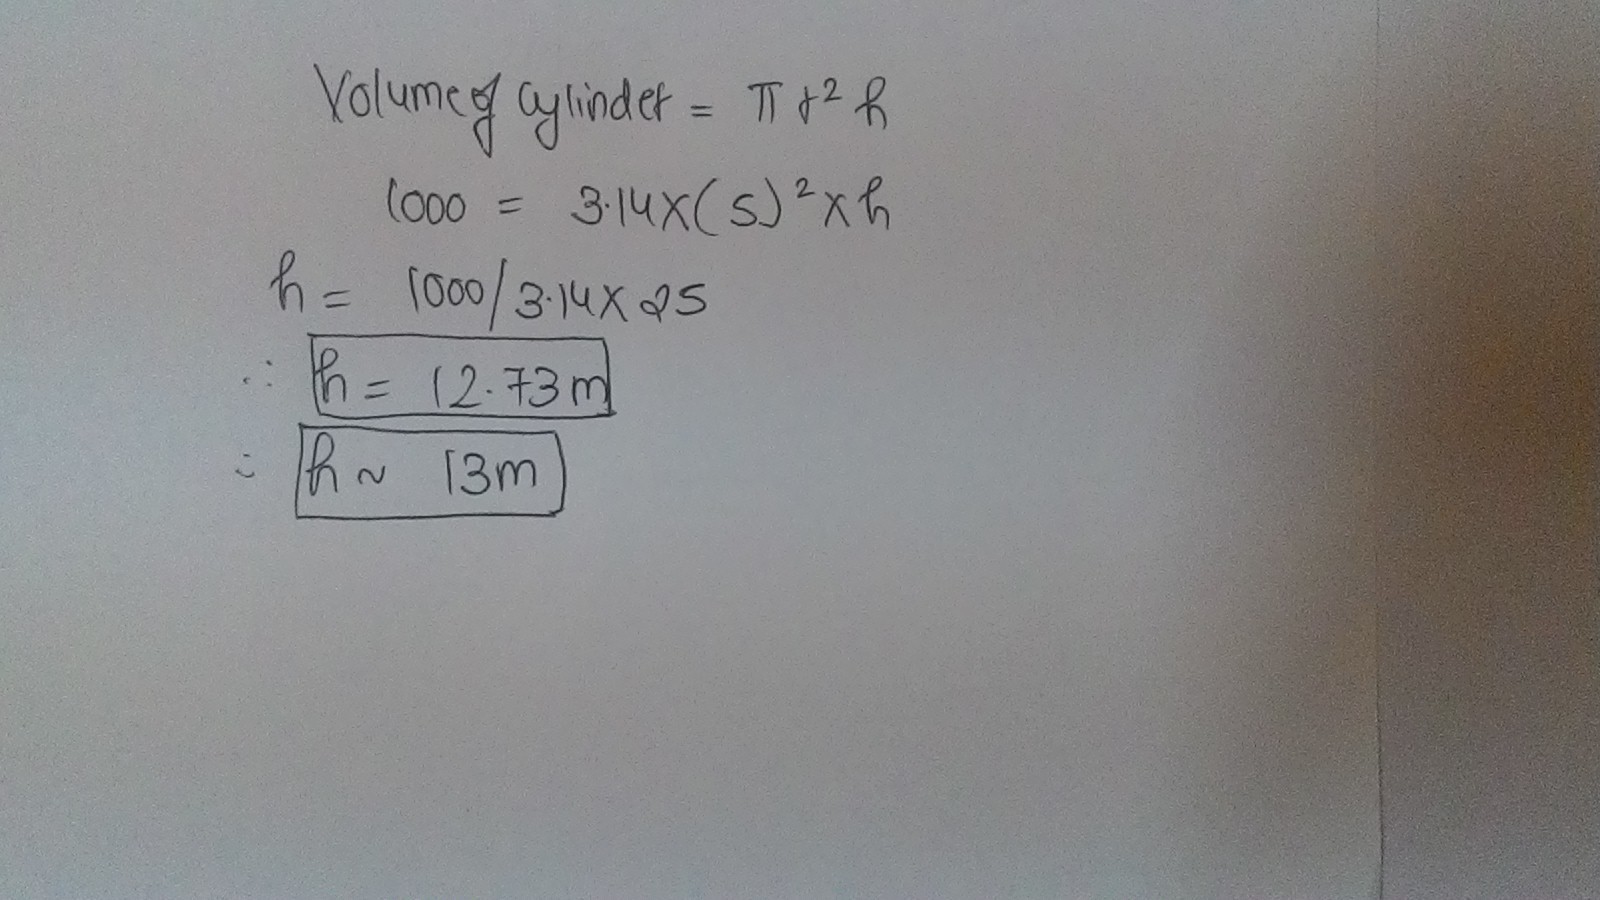 Volume of cylinder = π r² h
1000 = 3.14 x (5)² x h
h = 1000/3.14 x 25
∴ h = 12.73 m
∴ h ~ 13 m